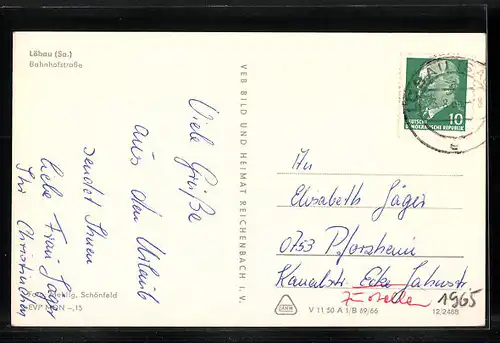 Löbau (Sa.)
Bahnhofstraße
Viele Grüße
aus dem Urlaub
sendet Ihnen
liebe Frau Jäger
Ihr Christinchen
VEB BILD UND HEIMAT REICHENBACH I. V.
10
DEUTSCHE
DEMOKRATISCHE REPUBLIK
An
Elisabeth Jäger
0753 Pforzheim
Kanalstr. Ecke Jahnstr
1965
Schönfeld
EVP MDN -,15
V 11 50 A 1/B 69/66
12/2488